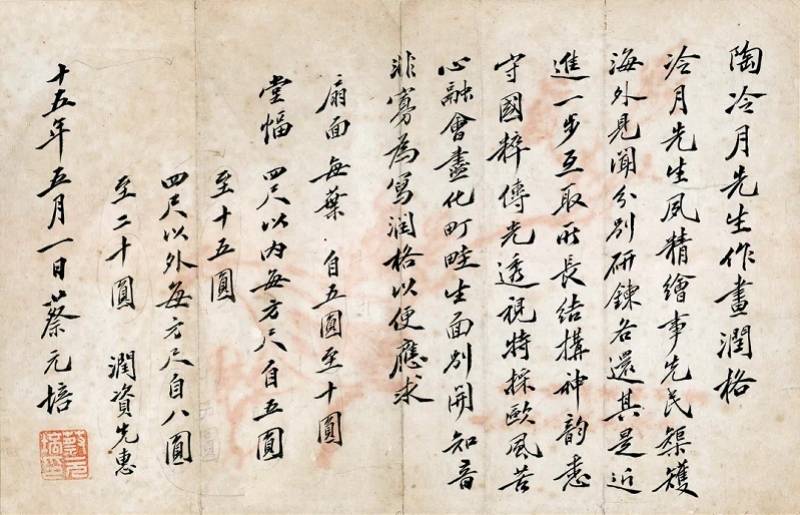 陶冷月先生作畫潤格
冷月先生夙精繪事先民榘矱
海外見聞分別研鍊各還其是近
進一步互取所長結構神韵悉
守國粹傳光透視特採歐風苦
心融會盡化町畦生面別開知音
非寡為寫潤格以便應求
扇面 每葉 自五圓至十圓
堂幅 四尺以內每方尺自五圓
至十五圓
四尺以外每方尺自八圓
至二十圓 潤資先惠
十五年五月一日蔡元培
蔡元培印